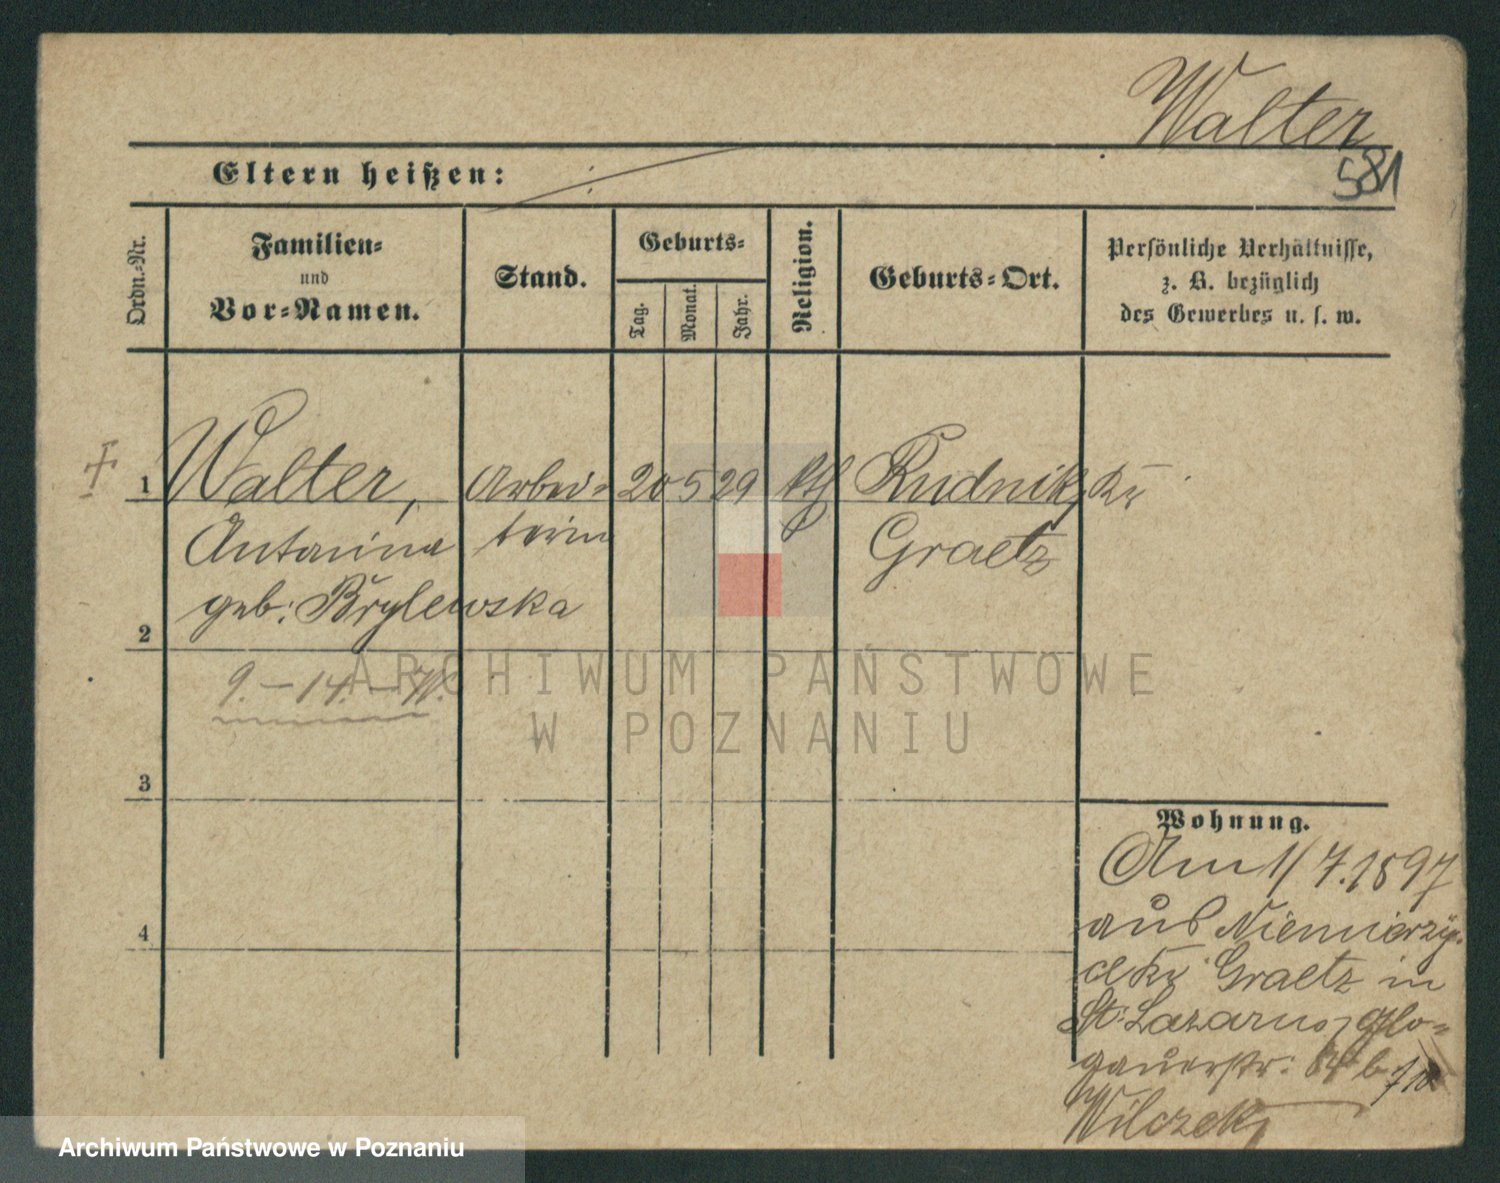 Walter
581
Eltern heißen:
Ordn.-Nr.
Familien-
und
Vor-Namen.
Stand.
Geburts-
Tag.
Monat.
Jahr.
Religion.
Geburts-Ort.
Persönliche Verhältnisse,
z. B. bezüglich
des Gewerbes u. s. w.
1 Walter, Arbei- 20 5 29 kth Rudnik, Kr
Antonina terin Graetz
geb: Brylewska
2
9. - 14.
3
Wohnung.
Am 1/7.1897
aus Niemierzy-
ce Kr Graetz in
St: Lazarus, Glo-
gauerstr: 84 b
Wilczek
4
ARCHIWUM PAŃSTWOWE
W POZNANIU
Archiwum Państwowe w Poznaniu